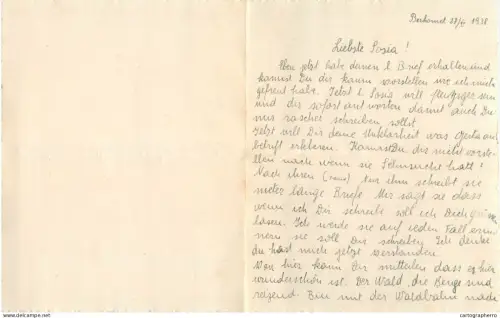 Berhomet 27/4 1938
Liebste Sosia!
Eben jetzt habe deinen l. Brief erhalten und
kannst Du dir kaum vorstellen wie ich mich
gefreut habe. Jetzt l. Sosia will fleissiger sein
und dir sofort antworten damit auch Du
mir rascher schreiben sollst.
Jetzt will Dir deine Unklarheit was
betrifft erklären. Kannst Du dir nicht vorste-
llen nach wem sie Sehnsucht hatt!
Nach ihrem (neun) nur ihm schreibt sie
meter lange Briefe. Mir sagt sie dass
wenn ich Dir schreibe soll ich Dich grüssen
lassen. Ich werde sie auf jeden Fall erin-
nern sie soll Dir schreiben. Ich denke
du hast mich jetzt verstanden.
Von hier kann Dir mitteilen dass es hier
wunderschön ist. Der Wald, die Berge sind
reizend. Bin mit der Waldbahn nach
cartographerro